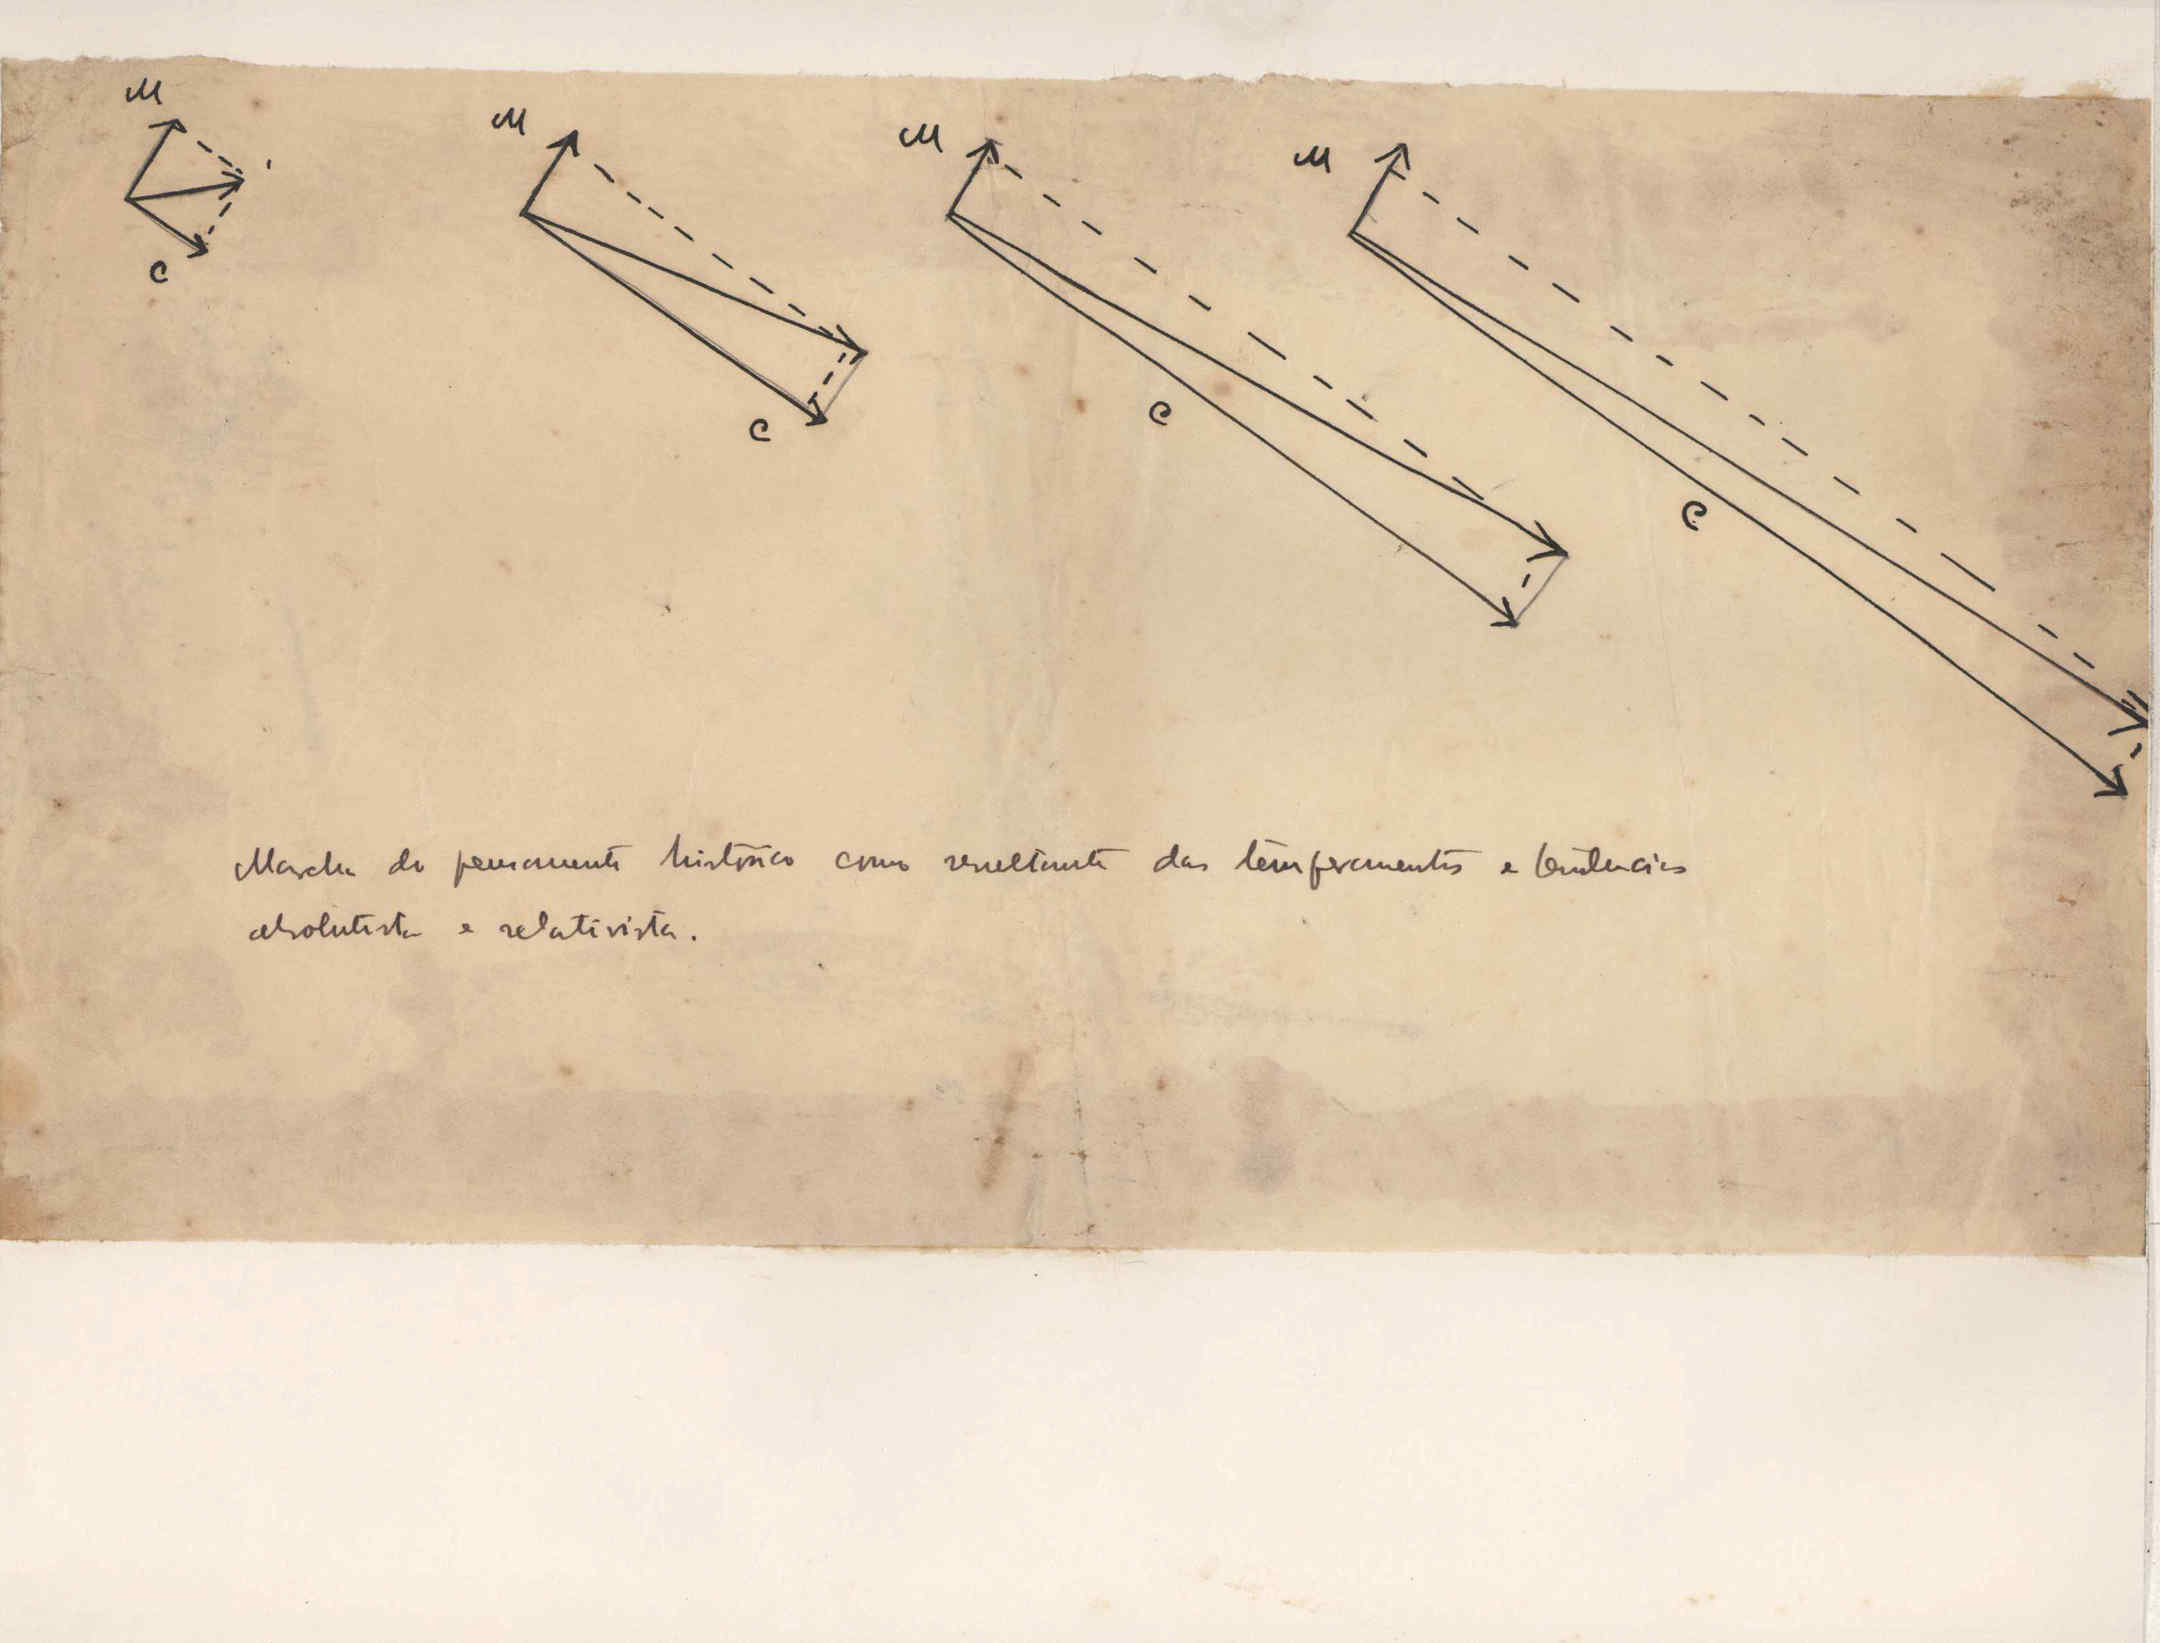 M M M M
C C C C
Marcha do pensamento histórico como resultante das temperamentos e tendencias
absolutista e relativista.